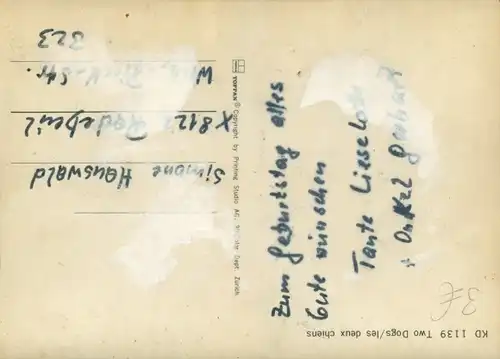 KD 1139 Two Dogs/les deux chiens
3€
Zum Geburtstag alles
Gute wünschen
Tante Lieselotte
+ Onkel Gerhard
TOPPAN ® Copyright by Printing Studio AG, Dept. Zürich
Simone Hauswald
X 8122 Radebeul
Str.
323